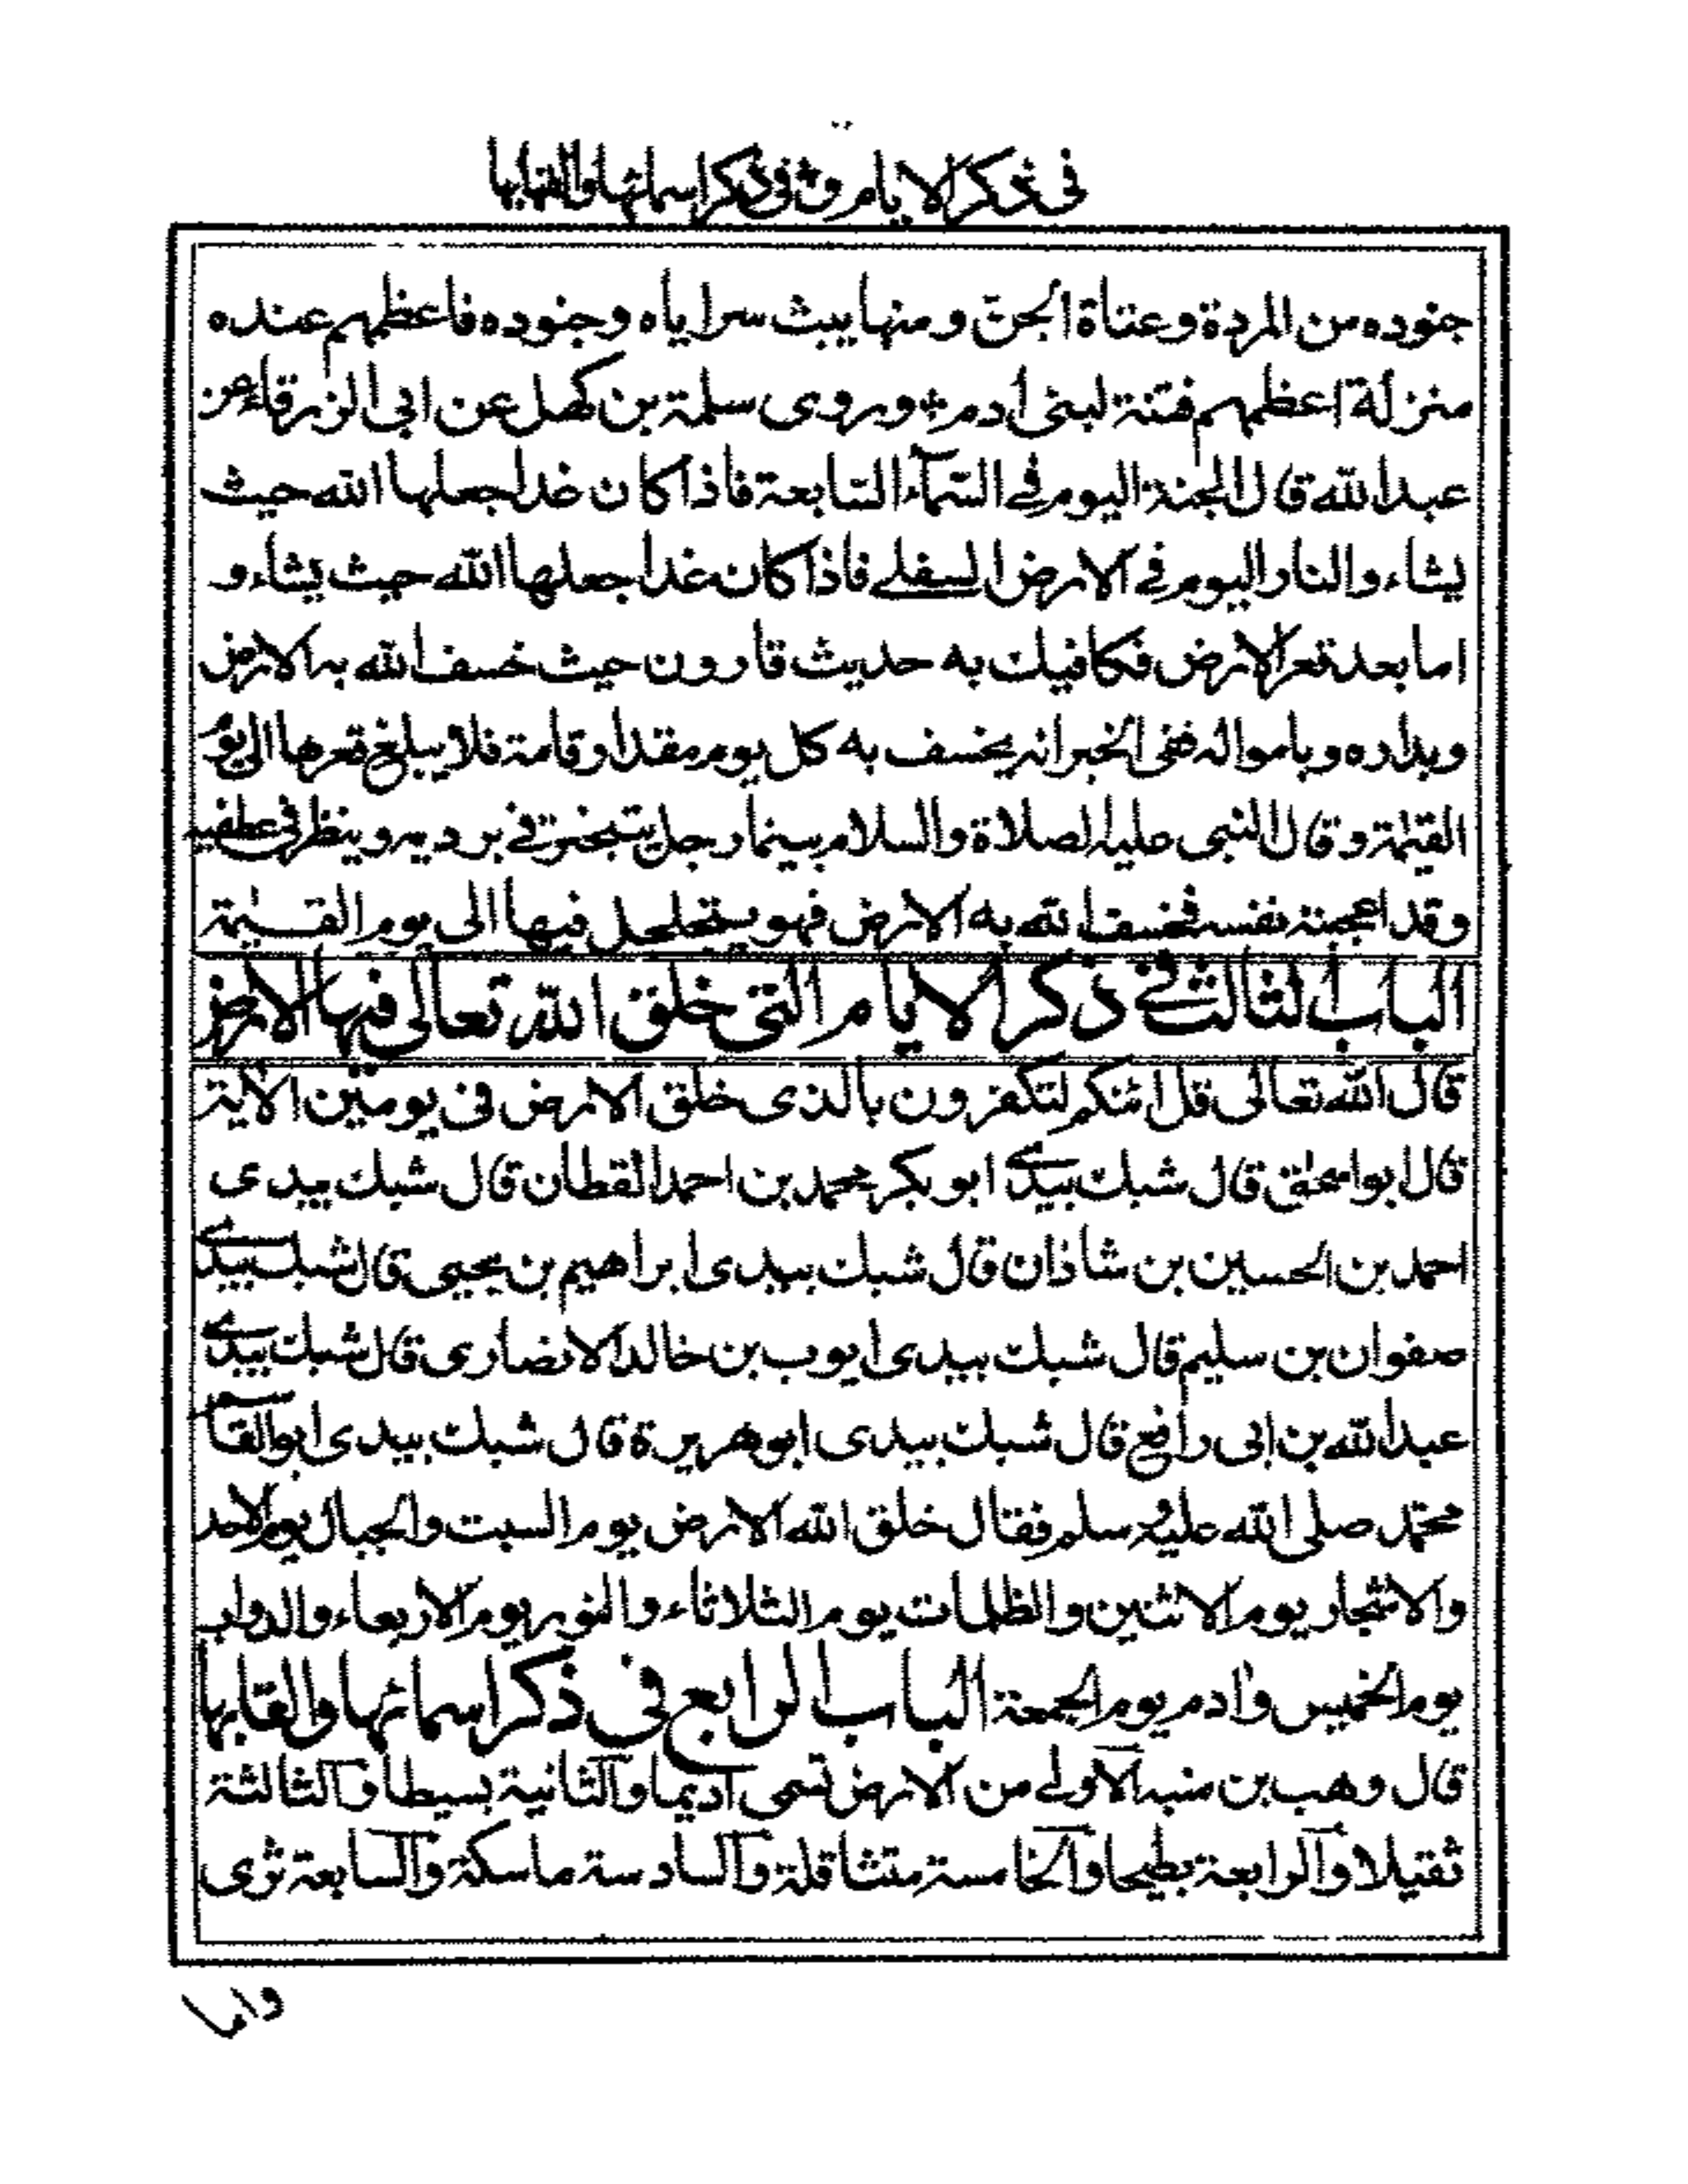 في ذكر الايام وفي ذكر اسمائها والقابها
جنوده من المردة وعتاة الجنّ ومنها يبث سراياه وجنوده فاعظمهم عنده
منزلة اعظمهم فتنة لبنى أدم وروى سلمة بن كهيل عن ابى الزرقاء عن
عبد الله قال الجنة اليوم في السّمآء السّابعة فاذا كان غدا جعلها الله حيث
يشاء والنار اليوم في الارض السفلے فاذا كان غدا جعلها الله حيث يشاء و
اما بعد قعر الارض فكافيك به حديث قارون حيث خسف الله به الارض
وبداره وباموالہ ففى الخبر انہ يخسف به كل يوم مقدار قامة فلا يبلغ قعرها الى يوم
القيٰمة وقال النبى عليہ الصلاة والسلام بينما رجل يتبختر في برديه وينظر في عطفيه
وقد اعجبته نفسه فخسف الله به الارض فهو يتجلجل فيها الى يوم القيٰمة
الباب الثالث في ذكر الايام التى خلق الله تعالى فيها الارض
قال الله تعالى قل ائنكم لتكفرون بالذى خلق الارض في يومين الأية
قال ابو اسحٰق قال شبك بيدى ابو بكر محمد بن احمد القطان قال شبك بيدى
احمد بن الحسين بن شاذان قال شبك بيدى ابراهيم بن يحيى قال شبك بيدى
صفوان بن سليم قال شبك بيدى ايوب بن خالد الانصارى قال شبك بيدى
عبد الله بن ابى رافع قال شبك بيدى ابو هريرة قال شبك بيدى ابو القاسم
محمّد صلى الله عليہ وسلم فقال خلق الله الارض يوم السبت والجبال يوم الاحد
والاشجار يوم الاثنين والظلمات يوم الثلاثاء والنور يوم الاربعاء والدواب
يوم الخميس وأدم يوم الجمعة الباب الرابع في ذكر اسمائها والقابها
قال وهب بن منبه الاولے من الارض تسمى اديما والثانية بسيطا والثالثة
ثقيلا والرابعة بطيحا والخامسة متثاقلة والسادسة ماسكة والسابعة ثرى
واما